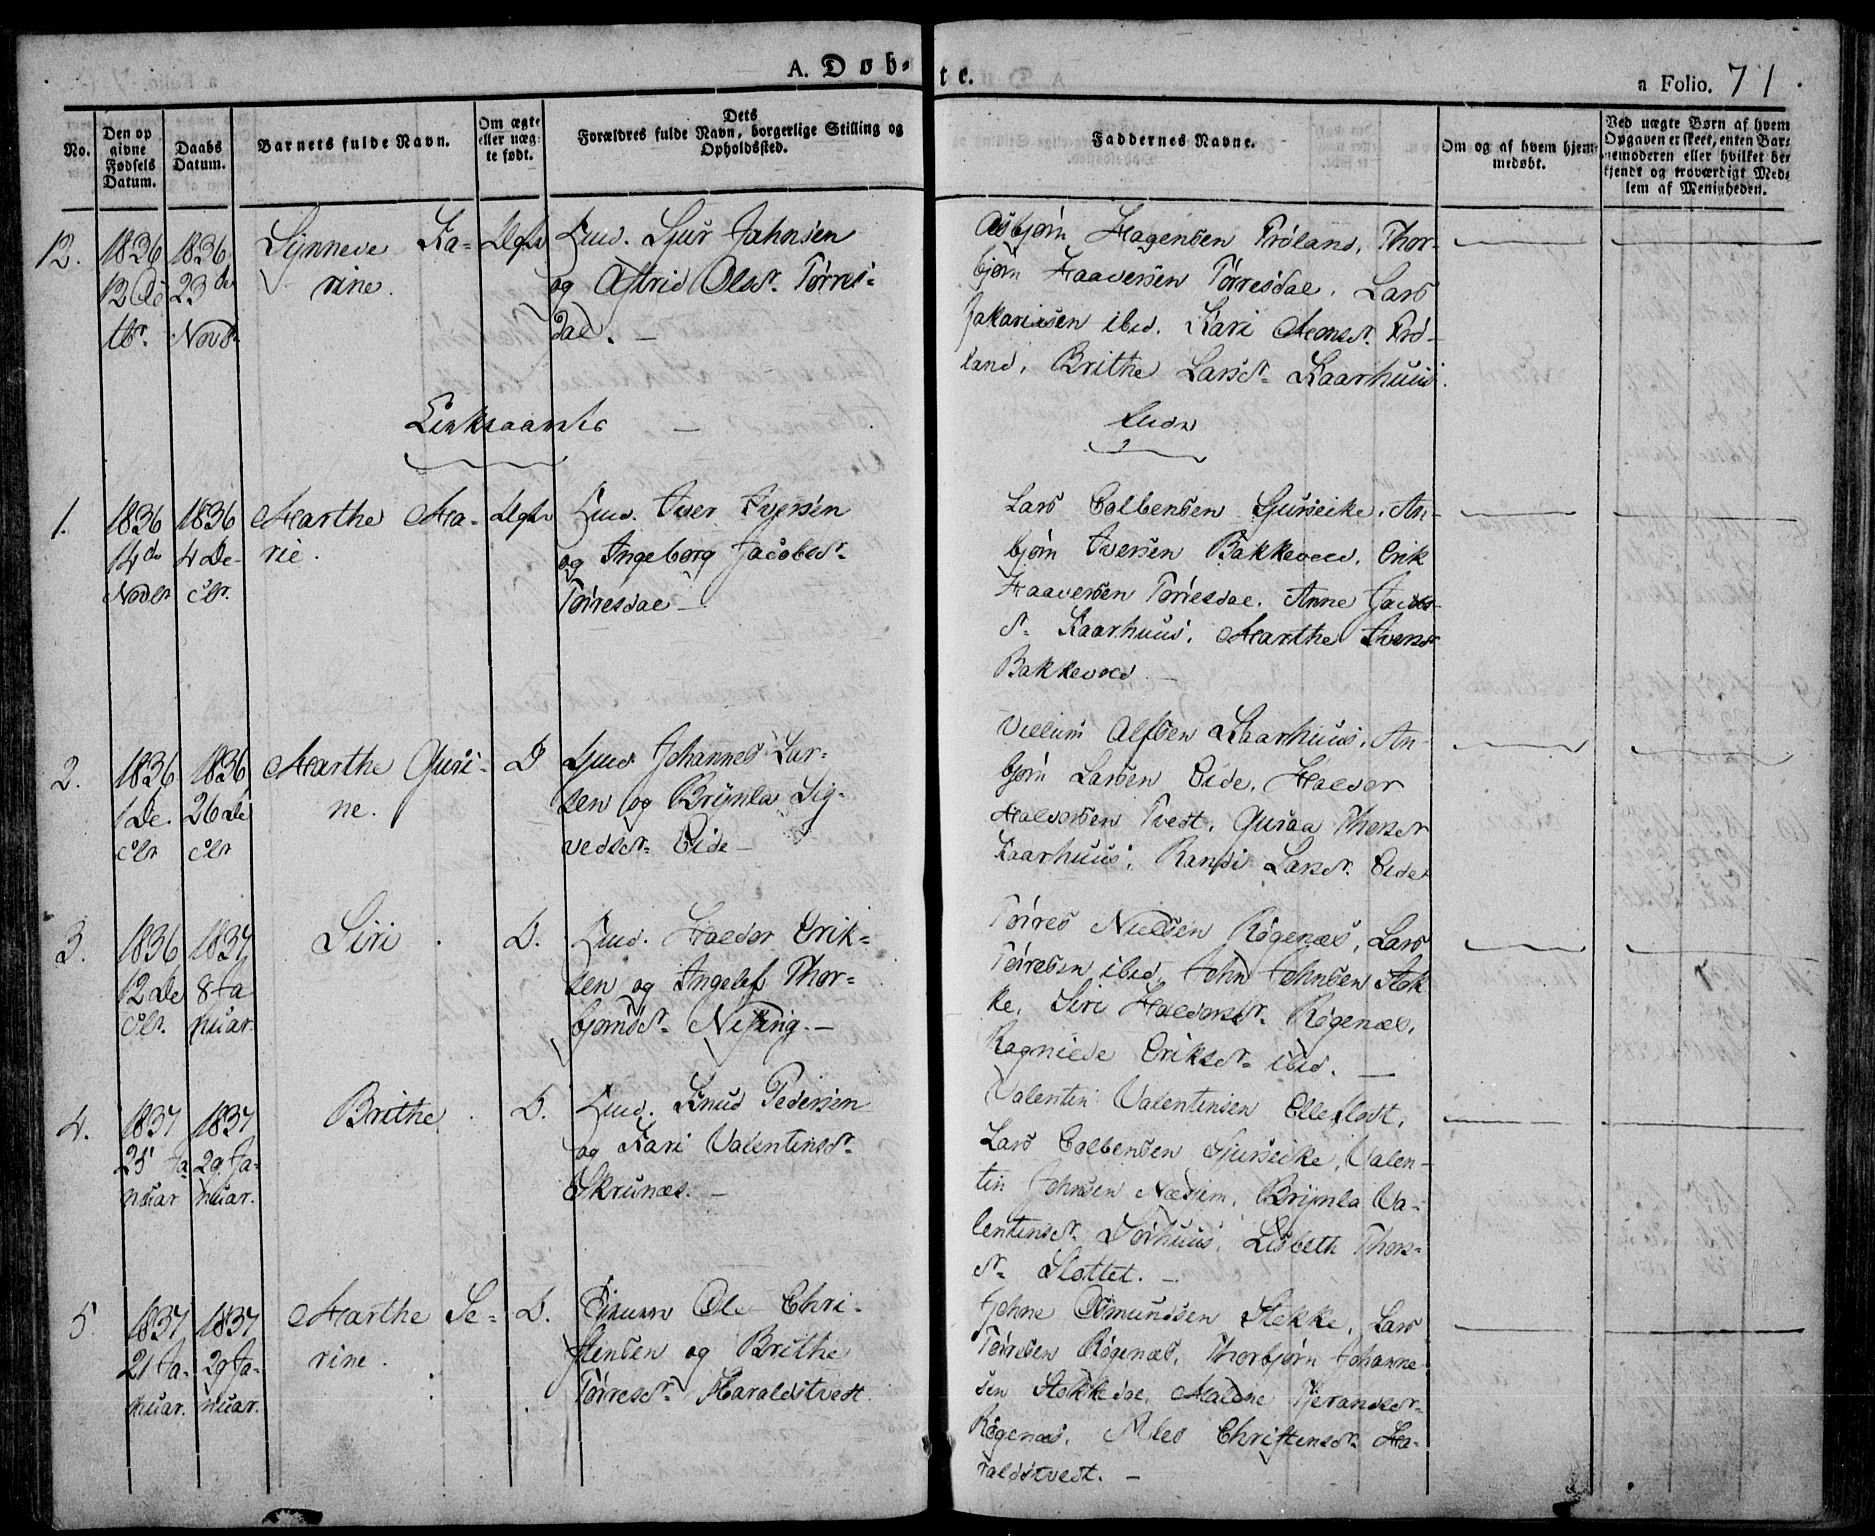 A. Døb-
te.
a Folio. 71.
No.
Den op
givne
Fødsels
Datum.
Daabs
Datum.
Barnets fulde Navn.
Om ægte
eller uæg-
te født.
Dets
Forældres fulde Navn, borgerlige Stilling og
Opholdssted.
Faddernes Navne.
Om og af hvem hjem-
medøbt.
Ved uægte Børn af hvem
Opgaven er skeet, enten Bar-
nemoderen eller hvilket be-
kjendt og troværdigt Med-
lem af Menigheden.
12.
1836
12
1836
23de
Novbr
Synneve Ka-
rine.
Ægte
Huus. Sjur Jahnsen
og Astrid Olsdr. Tørres-
dal. -
Asbjørn Hagensen Frøland, Thor-
bjørn Haaversen Tørresdal, Lars
Zakariasen ibid. Kari Monsdr. Frø-
land, Brithe Larsdr. Kaarhuus.
1.
1836
14de
Novbr
1836
4 De-
cbr.
Marthe Ma-
rie.
Ægte
Huus. Iver Iversen
og Ingeborg Jacobsdr.
Tørresdal -
Lars Colbensen Gjurseike, An-
bjørn Iversen Bakkevold, Erik
Haaversen Tørresdal, Anne Jacobs-
dr. Kaarhuus, Marthe Iversdr
Bakkevold. -
2.
1836
1 De-
cbr
1836
26 De
cbr
Marthe Guri-
ne.
D
Huus. Johannes Lar-
sen og Brynla Sig-
vedsdr. Eide -
Villum Alfsen Kaarhuus, An-
bjørn Larsen Eide, Haldor
Halvorsen Tvedt, Guraa Thorsdr
Kaarhuus, Randi Larsdr. Eide
3.
1836
12 De
cbr.
1837
8 Ja
nuar.
Siri
D.
Huus. Haldor Erik-
sen og Ingelef Thor-
bjørnsdr. -
Tørres Nielsen Røgenæs, Lars
Tørresen ibid, John Johnsen Stok
ke, Siri Haldorsdr. Røgenæs,
Ragnilde Eriksdr. ibid. -
4.
1837
25 Ja
nuar
1837
29 Ja-
nuar.
Brithe
D.
Huus. Knud Pedersen
og Kari Valentinsdr.
Skrunæs. -
Valentin Valentinsen Olleslott,
Lars Colbensen Gjurseike, Valen-
tin Johnsen Næsiem, Brynla Va-
lentinsdr. Sørhuus, Lisbeth Thors-
dr. Slottet. -
5.
1837
21 Ja-
nuar.
1837
29 Ja-
nuar.
Marthe Se-
rine.
D.
Ole Chri-
stensen og Brithe
Tørresdr. Haraldstvedt
Johne Osmundsen Stokke, Lars
Tørresen Røgenæs, Thorbjørn Johanne-
sen Stokkedal, Malene Tjerandsdr.
Røgenæs, Christensdr. Ha-
raldstvedt. -